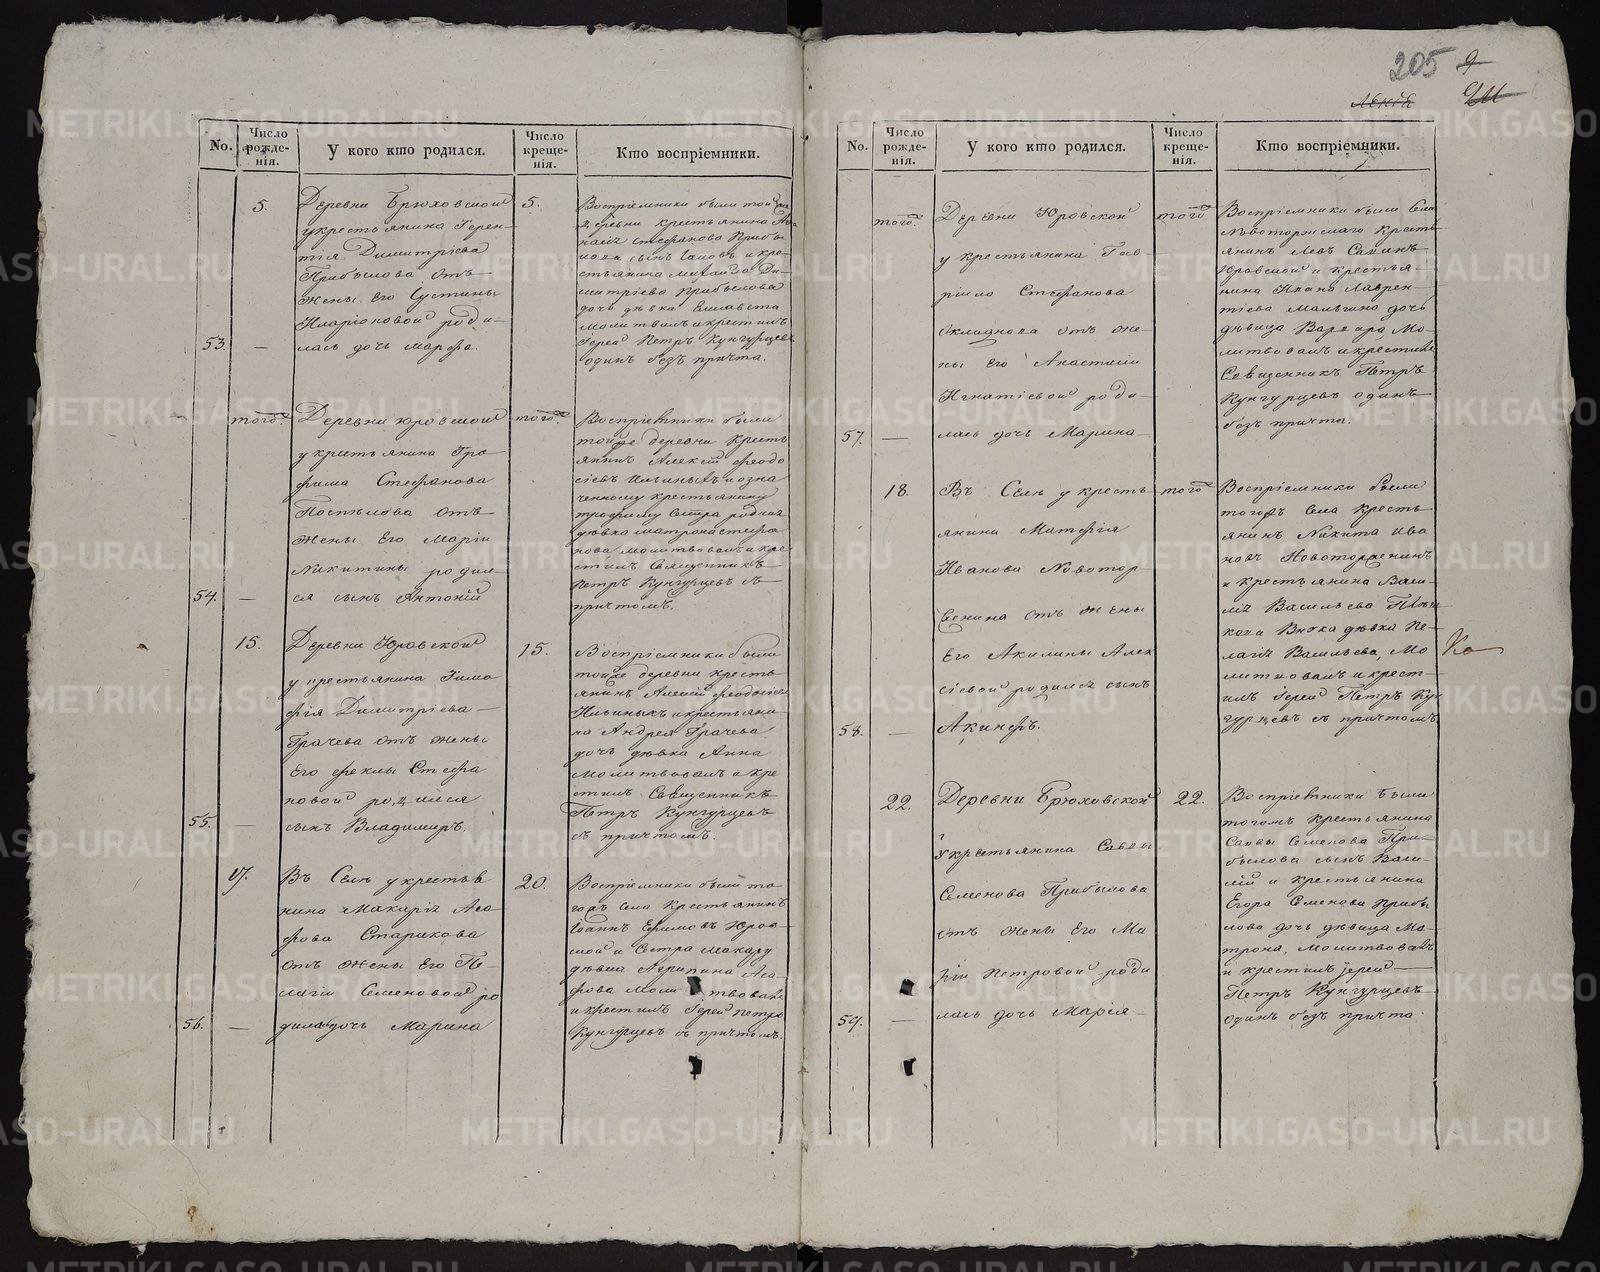 205 9
No.
Число рожде-нія.
У кого кто родился.
Число креще-нія.
Кто воспріемники.
5.
Деревни Брюховской
у крестьянина Терен-
тія Димитріева
Прибылова отъ
жены Его Іустины
Иларіоновой роди-
53. — лась дочь Марфа.
5.
Воспріемники были той же
деревни крестьянина
Стефанова Прибы
лова сынъ Іаковъ и кре-
стьянина Михаила Ди-
митріева Прибылова
дочь дѣвка Елисавета
Молитвилъ и крестилъ
Іерей Петръ Кунгурцевъ
одинъ безъ причта.
того.
Деревни Юровской
у крестьянина Тро-
фима Стефанова
Поспѣлова отъ
жены Его Маріи
Никитины родил-
54. — ся сынъ Антоній
того.
Воспріемники были
той же деревни кресть
янинъ Алексій Феодо
сіевъ Ильиныхъ и озна
ченному крестьянину
Трофиму Сестра родная
дѣвка Матрона Стефа
нова Молитвовалъ и кре
стилъ Священникъ
Петръ Кунгурцевъ съ
причтомъ.
15.
Деревни Юровской
у крестьянина Тимо
фія Димитріева
Грачева отъ жены
Его Феклы Стефа
новой родился
55. — сынъ Владимиръ.
15.
Воспріемники были
той же деревни кресть
янинъ Алексій Феодосіевъ
Ильиныхъ и крестьяни
на Андрея Грачева
дочь дѣвка Анна
Молитвовалъ и кре
стилъ Священникъ
Петръ Кунгурцевъ
съ причтомъ.
17.
Въ Селѣ у крестья
нина Макарія Ага
фова Старикова
отъ жены Его Пе-
лагіи Семеновой ро
56. — дилась дочь Марина
20.
Воспріемники были то
гожъ Села Крестьянинъ
Іоаннъ Ефимовъ Юров-
ской и Сестра Макару
дѣвка Агрипина Ага-
фова Молитвовалъ
и крестилъ Іерей Петръ
Кунгурцевъ съ причтомъ.
No.
Число рожде-нія.
У кого кто родился.
Число креще-нія.
Кто воспріемники.
того.
Деревни Юровской
у крестьянина Гав-
ріила Стефанова
Окладнова отъ же-
ны Его Анастасіи
Игнатіевой роди-
57. — лась дочь Марина
того.
Воспріемники были Села
Новоторжскаго Кресть
янинъ Левъ Савинъ
Юровской и крестья-
нина Ивана Лаврен-
тіева Мальгина дочь
дѣвица Варвара Мо-
литвовалъ и крестилъ
Священникъ Петръ
Кунгурцевъ одинъ
безъ причта.
18.
Въ Селѣ у кресть-
янина Матфія
Иванова Новотор
женина отъ жены
Его Акилины Алек
сіевой родился сынъ
58. — Акинфъ.
того
Воспріемники были
тогожъ Села Кресть
янинъ Никита Ива
новъ Новоторженинъ
и крестьянина Васи-
лія Васильева
дѣвка Пе-
лагія Васильева, Мо
литвовалъ и крест-
илъ Іерей Петръ Кун
гурцевъ съ причтомъ
22.
Деревни Брюховской
у крестьянина Саввы
Семенова Прибылова
отъ жены Его Ма
ріи Петровой роди
59. — лась дочь Марія
22.
Воспріемники были
тогожъ крестьянина
Саввы Семенова При-
былова сынъ Васи-
лій и крестьянина
Егора Семенова Прибы
лова дочь дѣвица Ма-
трона, Молитвовалъ
и крестилъ Іерей
Петръ Кунгурцевъ
одинъ безъ причта.